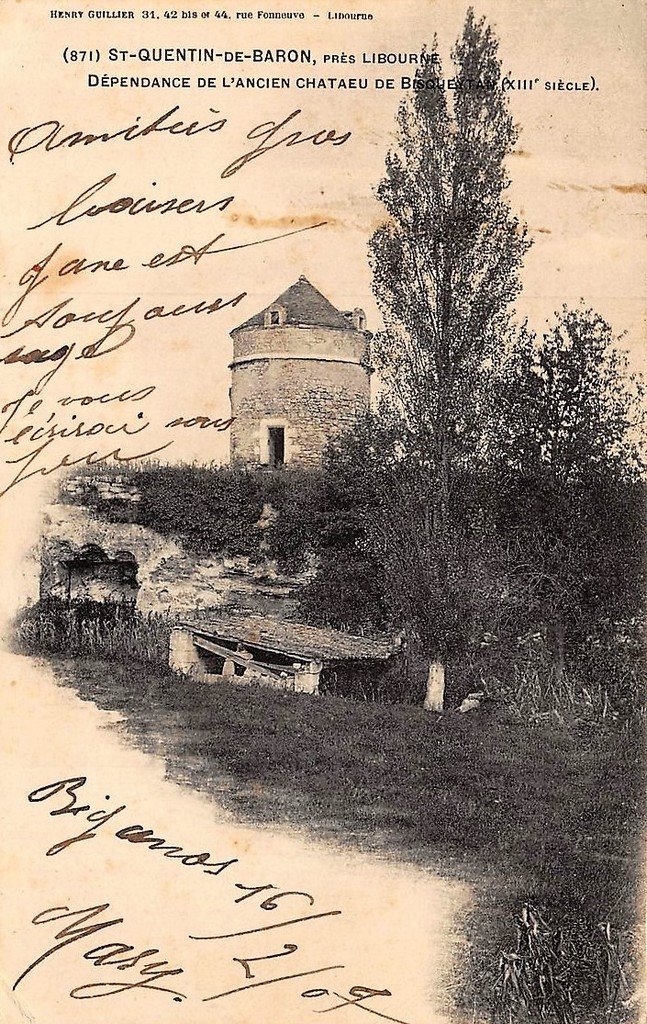 HENRY GUILLIER 31, 42 bis et 44, rue Fonneuve - LIBOURNE
(871) ST-QUENTIN-DE-BARON, PRÈS LIBOURNE
DÉPENDANCE DE L'ANCIEN CHATAEU DE BISQUEYTAN (XIIIe SIÈCLE).
Amitiés gros
baisers
Jane est
toujours
sage
Je vous
écrirai sous
peu
Biganos
16/2/07
Mary.